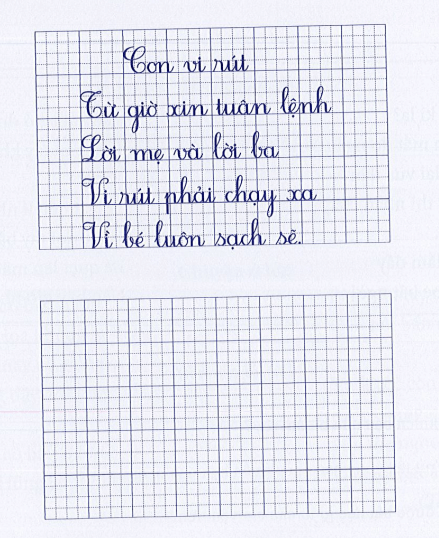 Con vi rút
Từ giờ xin tuân lệnh
Lời mẹ và lời ba
Vi rút phải chạy xa
Vì bé luôn sạch sẽ.